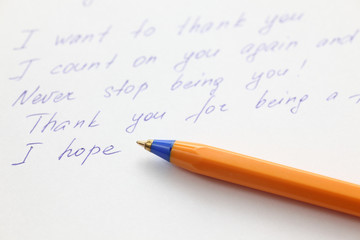 I want to thank you
I count on you again and
Never stop being you!
Thank you for being a
I hope